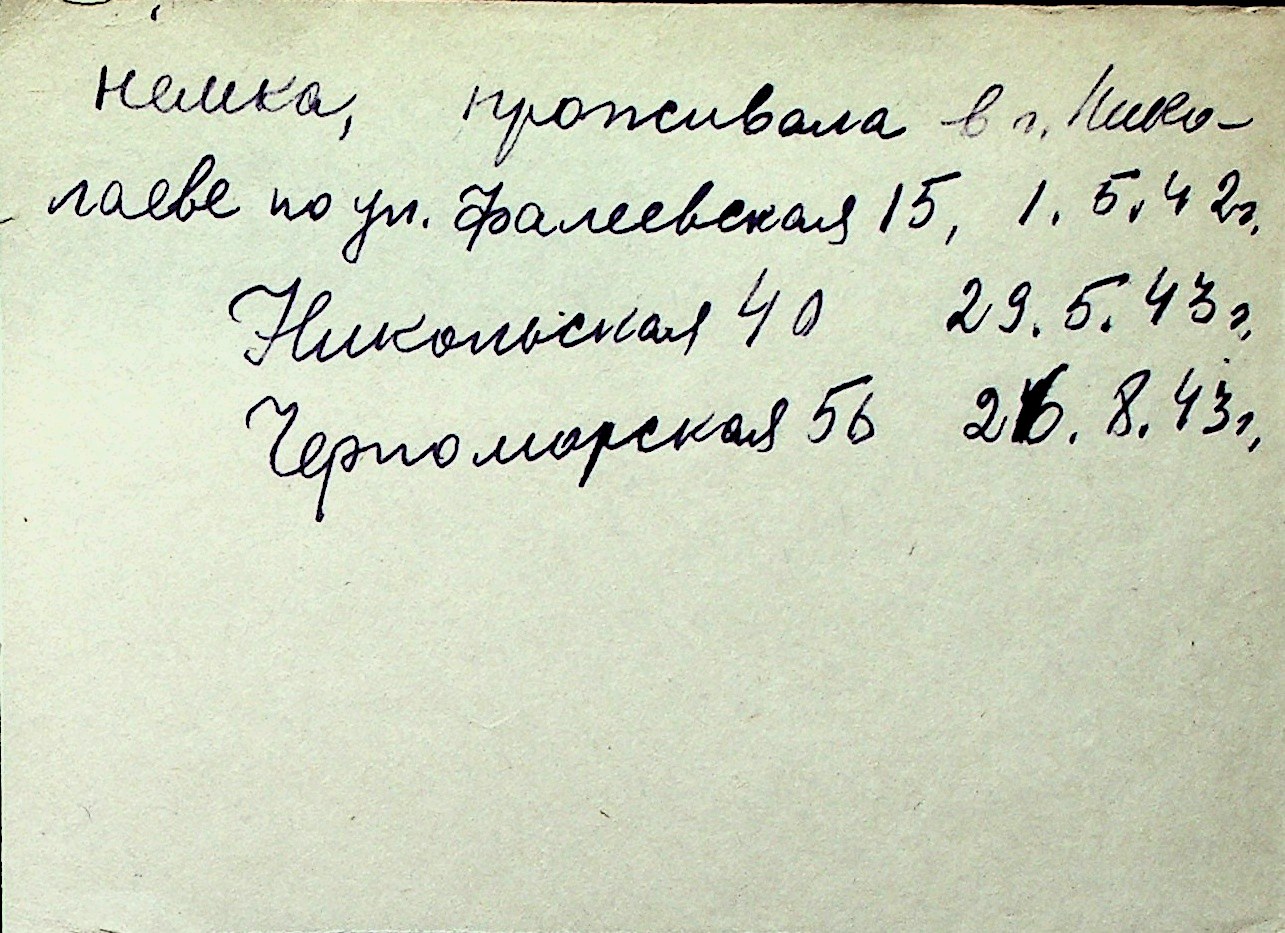 немка, проживала в г. Нико-
лаеве по ул. Фалеевская 15, 1.5.42г.
Никольская 40 29.5.43г.
Черноморская 56 26.8.43г.